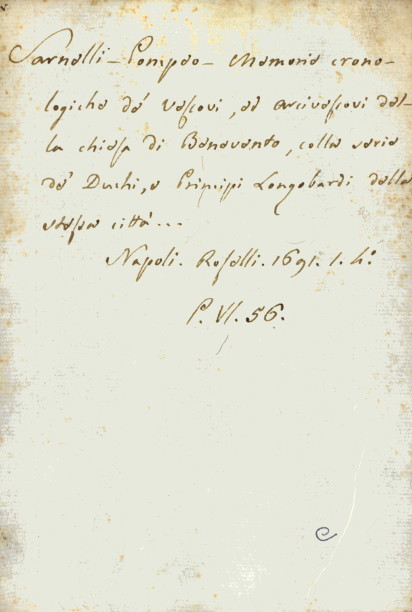 Sarnelli - Pompeo - Memorie crono-
logiche de' Vescovi, ed arcivescovi del-
la chiesa di Benevento, colla serie
de' Duchi, e Principi Longobardi della
stessa città...
Napoli. Roselli. 1691. 1. 4º
P. VI. 56.